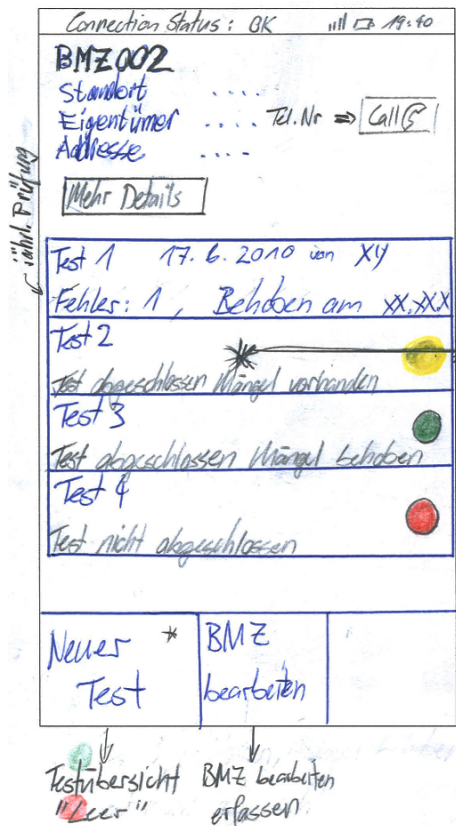 Connection Status: OK 19:40
BMZ002
Standort ....
Eigentümer .... Tel.Nr ⇒ Call
Addresse ....
Mehr Details
jährl. Prüfung
Test 1 17.6.2010 von XY
Fehler: 1, Behoben am XX.XX.X
Test 2
Test abgeschlossen Mängel vorhanden
Test 3
Test abgeschlossen Mängel behoben
Test 4
Test nicht abgeschlossen
Neuer * BMZ
Test bearbeiten
Testübersicht BMZ bearbeiten
"Leer" erfassen